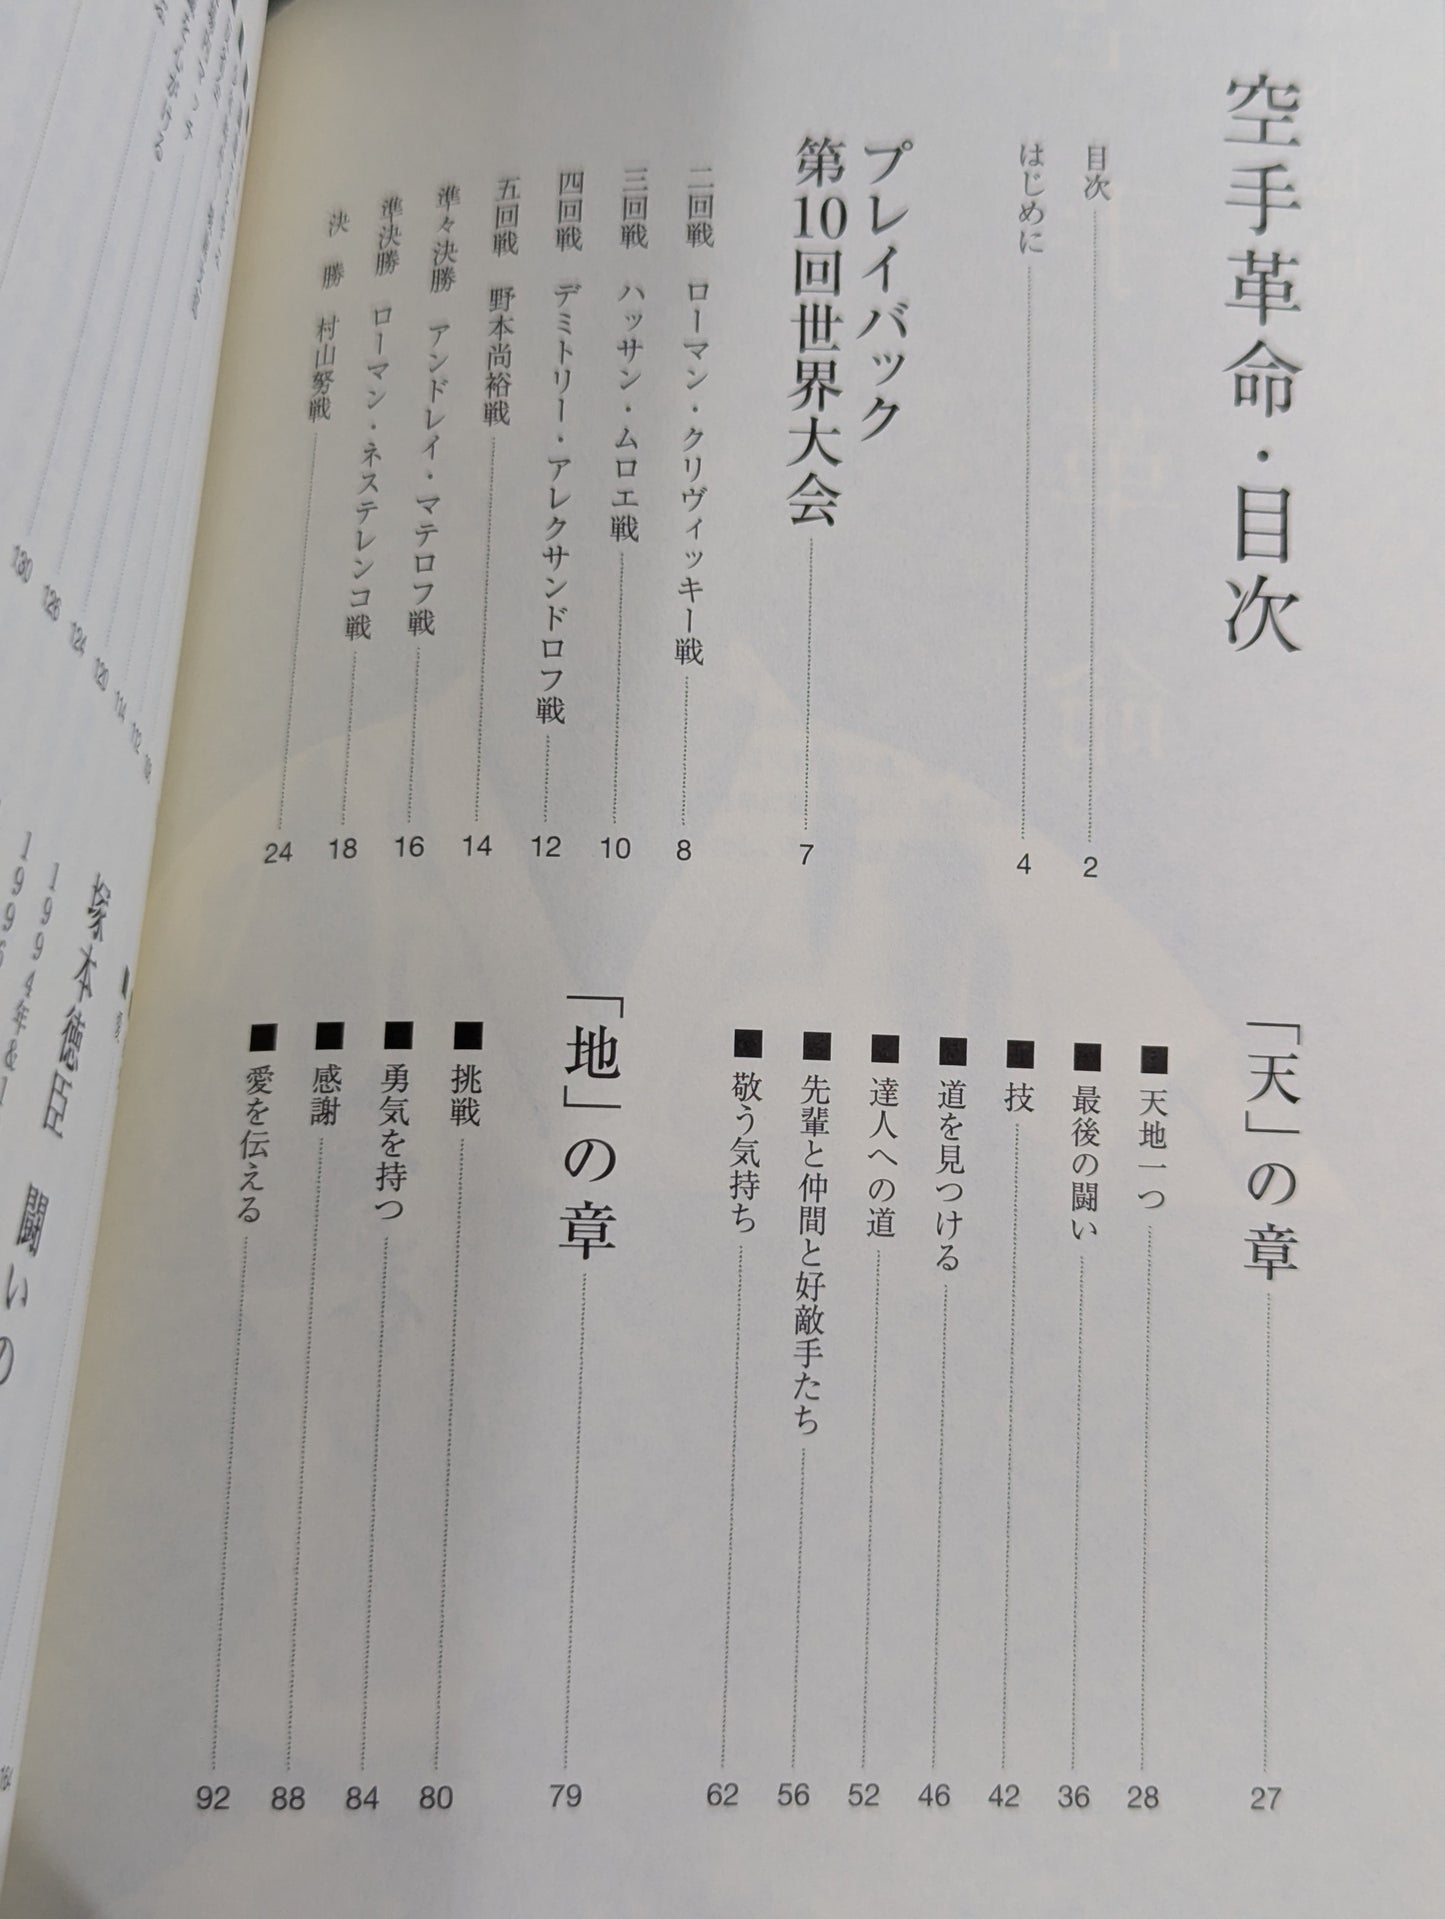 空手革命・目次
目次 2
はじめに 4
プレイバック
第10回世界大会 7
二回戦 ローマン・クリヴィッキー戦 8
三回戦 ハッサン・ムロエ戦 10
四回戦 デミトリー・アレクサンドロフ戦 12
五回戦 野本尚裕戦 14
準々決勝 アンドレイ・マテロフ戦 16
準決勝 ローマン・ネステレンコ戦 18
決勝 村山努戦 24
「天」の章 27
■天地一つ 28
■最後の闘い 36
■技 42
■道を見つける 46
■達人への道 52
■先輩と仲間と好敵手たち 56
■敬う気持ち 62
「地」の章 79
■挑戦 80
■勇気を持つ 84
■感謝 88
■愛を伝える 92
114
120
124
126
130
塚本徳臣 闘いの
1994年&1
164